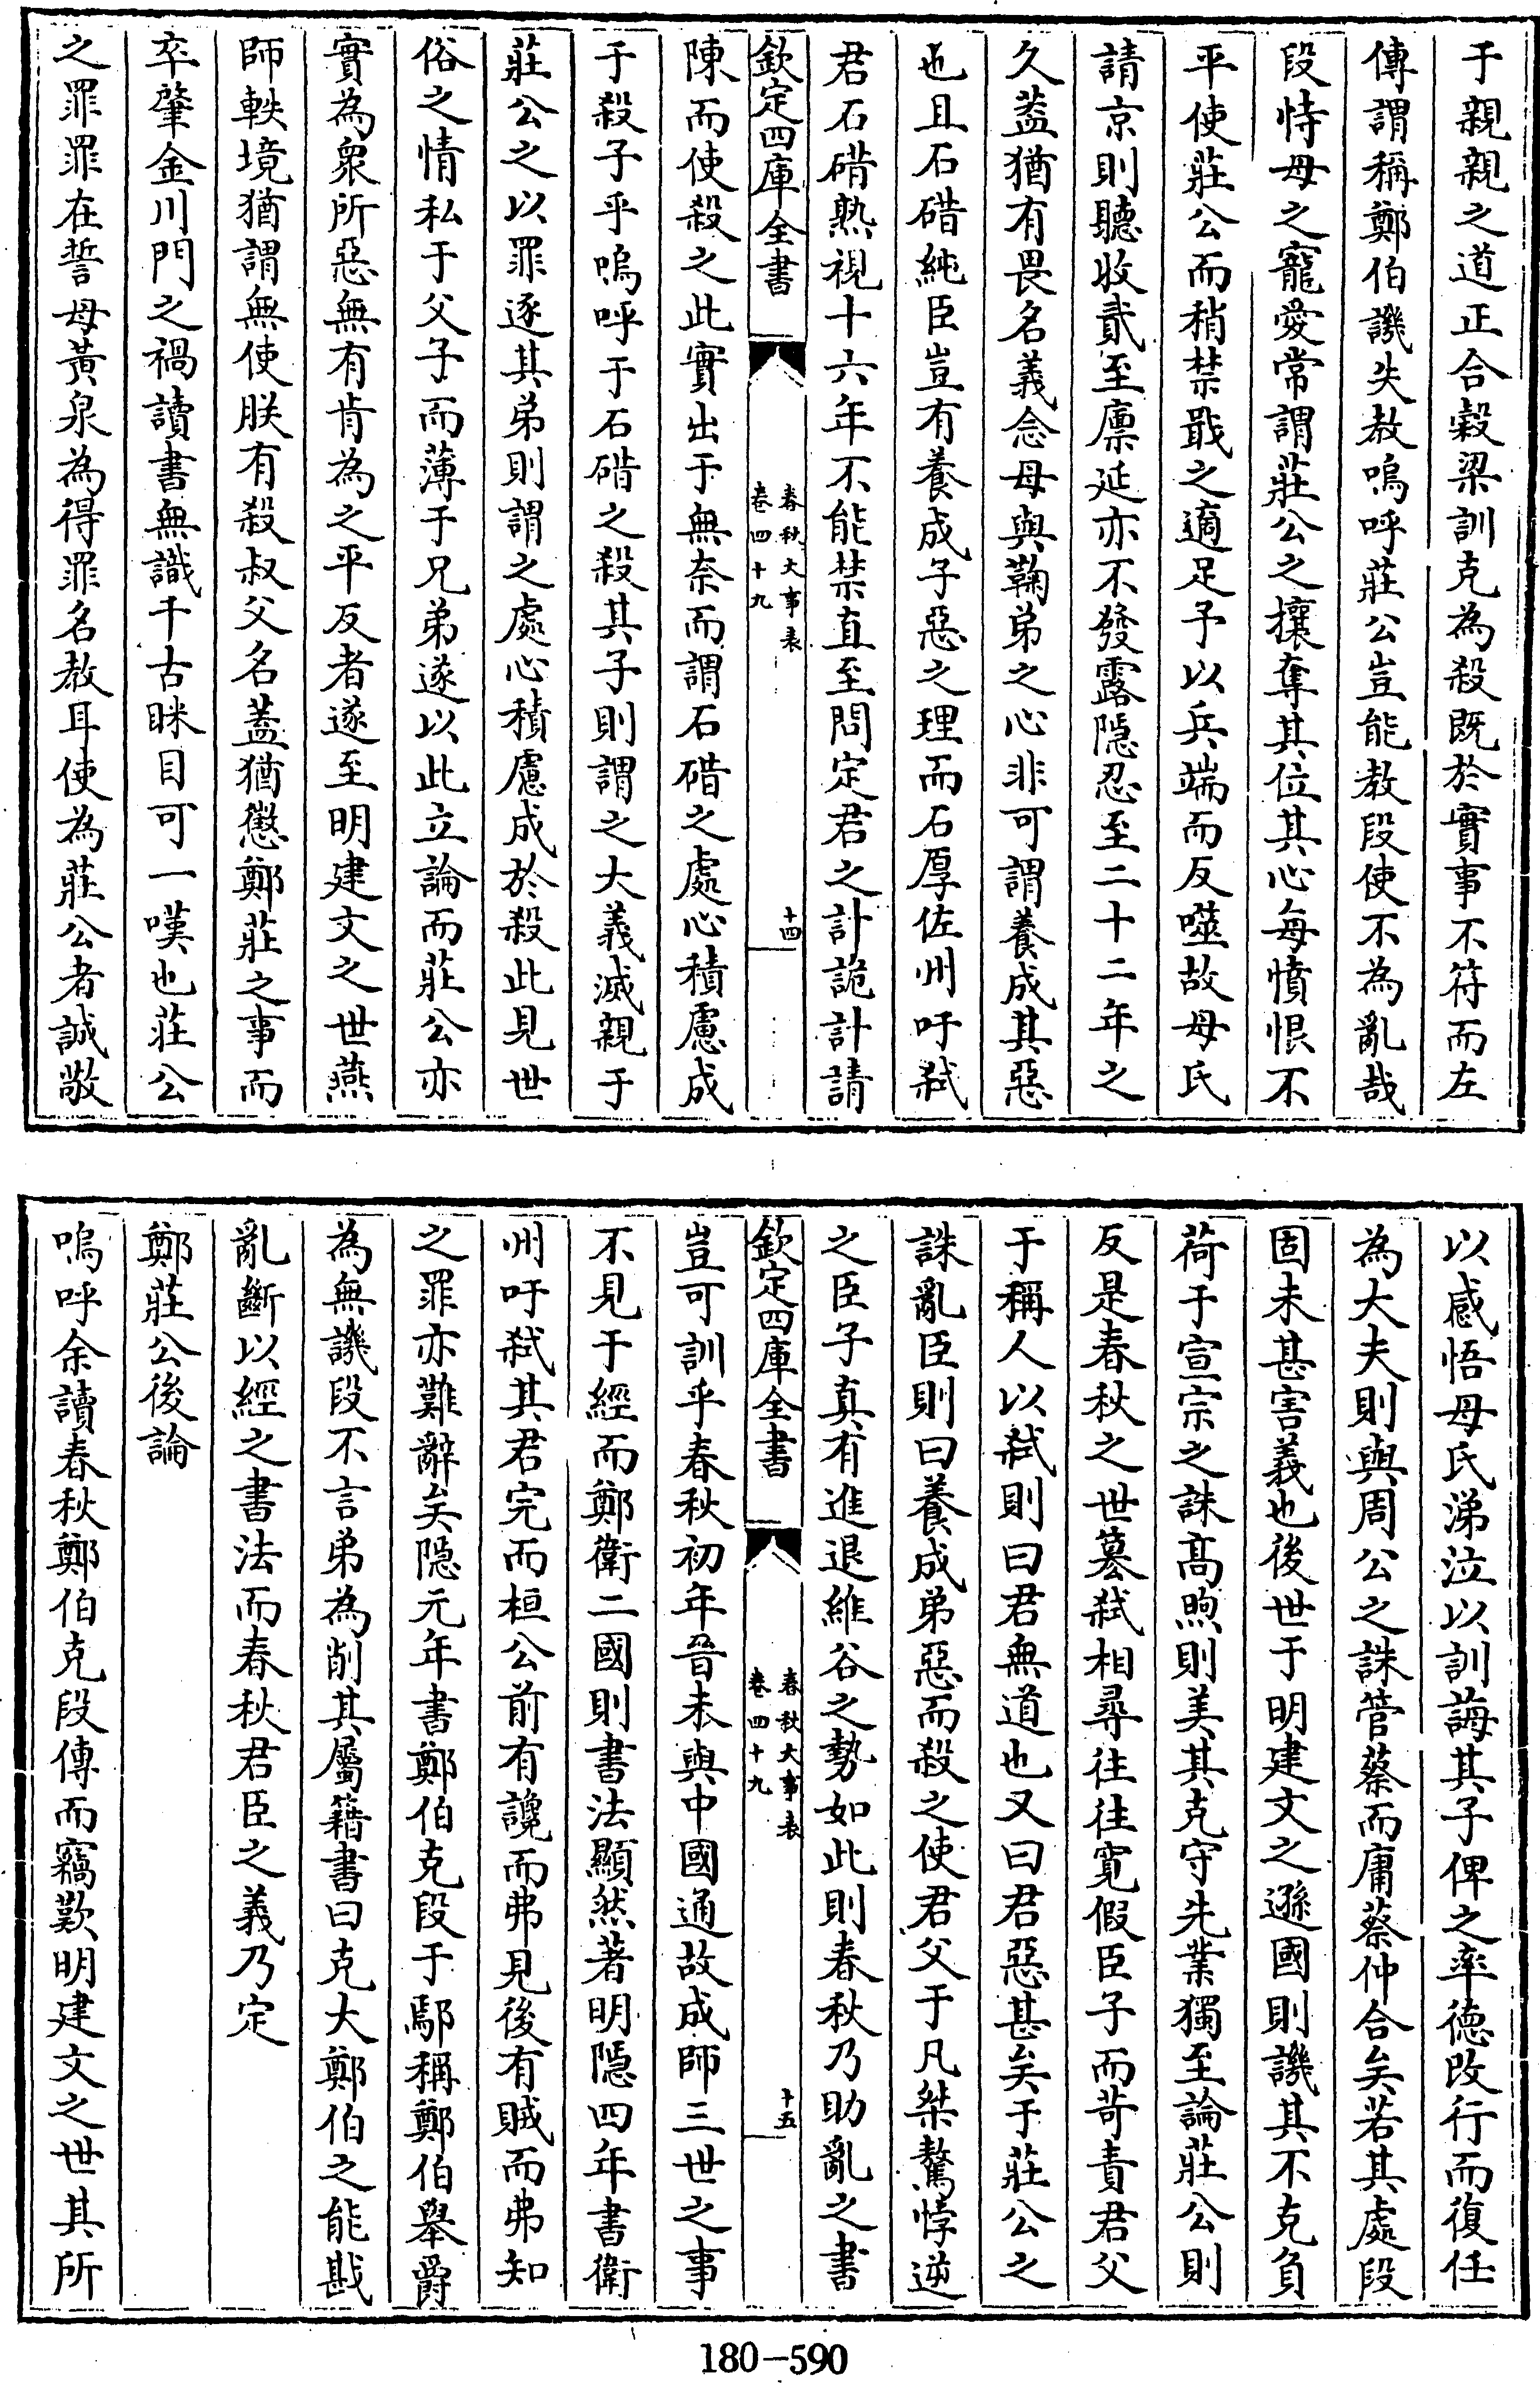 于親親之道正合穀梁訓克為殺既於實事不符而左
傳謂稱鄭伯譏失教嗚呼莊公豈能教段使不為亂哉
段恃母之寵愛常謂莊公之攘奪其位其心每憤恨不
平使莊公而稍禁戢之適足予以兵端而反噬故母氏
請京則聽收貳至廪延亦不發露隠忍至二十二年之
久葢猶有畏名義念母與鞠弟之心非可謂養成其惡
也且石碏純臣豈有養成子惡之理而石厚佐州吁弑
君石碏熟視十六年不能禁直至問定君之計詭計請
欽定四庫全書
春秋大事表
卷四十九
十四
陳而使殺之此實出于無奈而謂石碏之處心積慮成
于殺子乎嗚呼于石碏之殺其子則謂之大義滅親于
莊公之以罪逐其弟則謂之處心積慮成於殺此見世
俗之情私于父子而薄于兄弟遂以此立論而莊公亦
實為衆所惡無有肯為之平反者遂至明建文之世燕
師軼境猶謂無使朕有殺叔父名葢猶懲鄭莊之事而
卒肇金川門之禍讀書無識千古眯目可一嘆也莊公
之罪罪在誓母黃泉為得罪名教耳使為莊公者誠敬
以感悟母氏涕泣以訓誨其子俾之率德改行而復任
為大夫則與周公之誅管蔡而庸蔡仲合矣若其處段
固未甚害義也後世于明建文之遜國則譏其不克負
荷于宣宗之誅髙煦則美其克守先業獨至論莊公則
反是春秋之世簒弑相尋往往寛假臣子而苛責君父
于稱人以弑則曰君無道也又曰君惡甚矣于莊公之
誅亂臣則曰養成弟惡而殺之使君父于凡桀驁悖逆
之臣子真有進退維谷之勢如此則春秋乃助亂之書
欽定四庫全書
春秋大事表
卷四十九
十五
豈可訓乎春秋初年晉未與中國通故成師三世之事
不見于經而鄭衛二國則書法顯然著明隠四年書衛
州吁弑其君完而桓公前有讒而弗見後有賊而弗知
之罪亦難辭矣隠元年書鄭伯克段于鄢稱鄭伯舉爵
為無譏段不言弟為削其屬籍書曰克大鄭伯之能戡
亂斷以經之書法而春秋君臣之義乃定
鄭莊公後論
嗚呼余讀春秋鄭伯克段傳而竊歎明建文之世其所
180-590